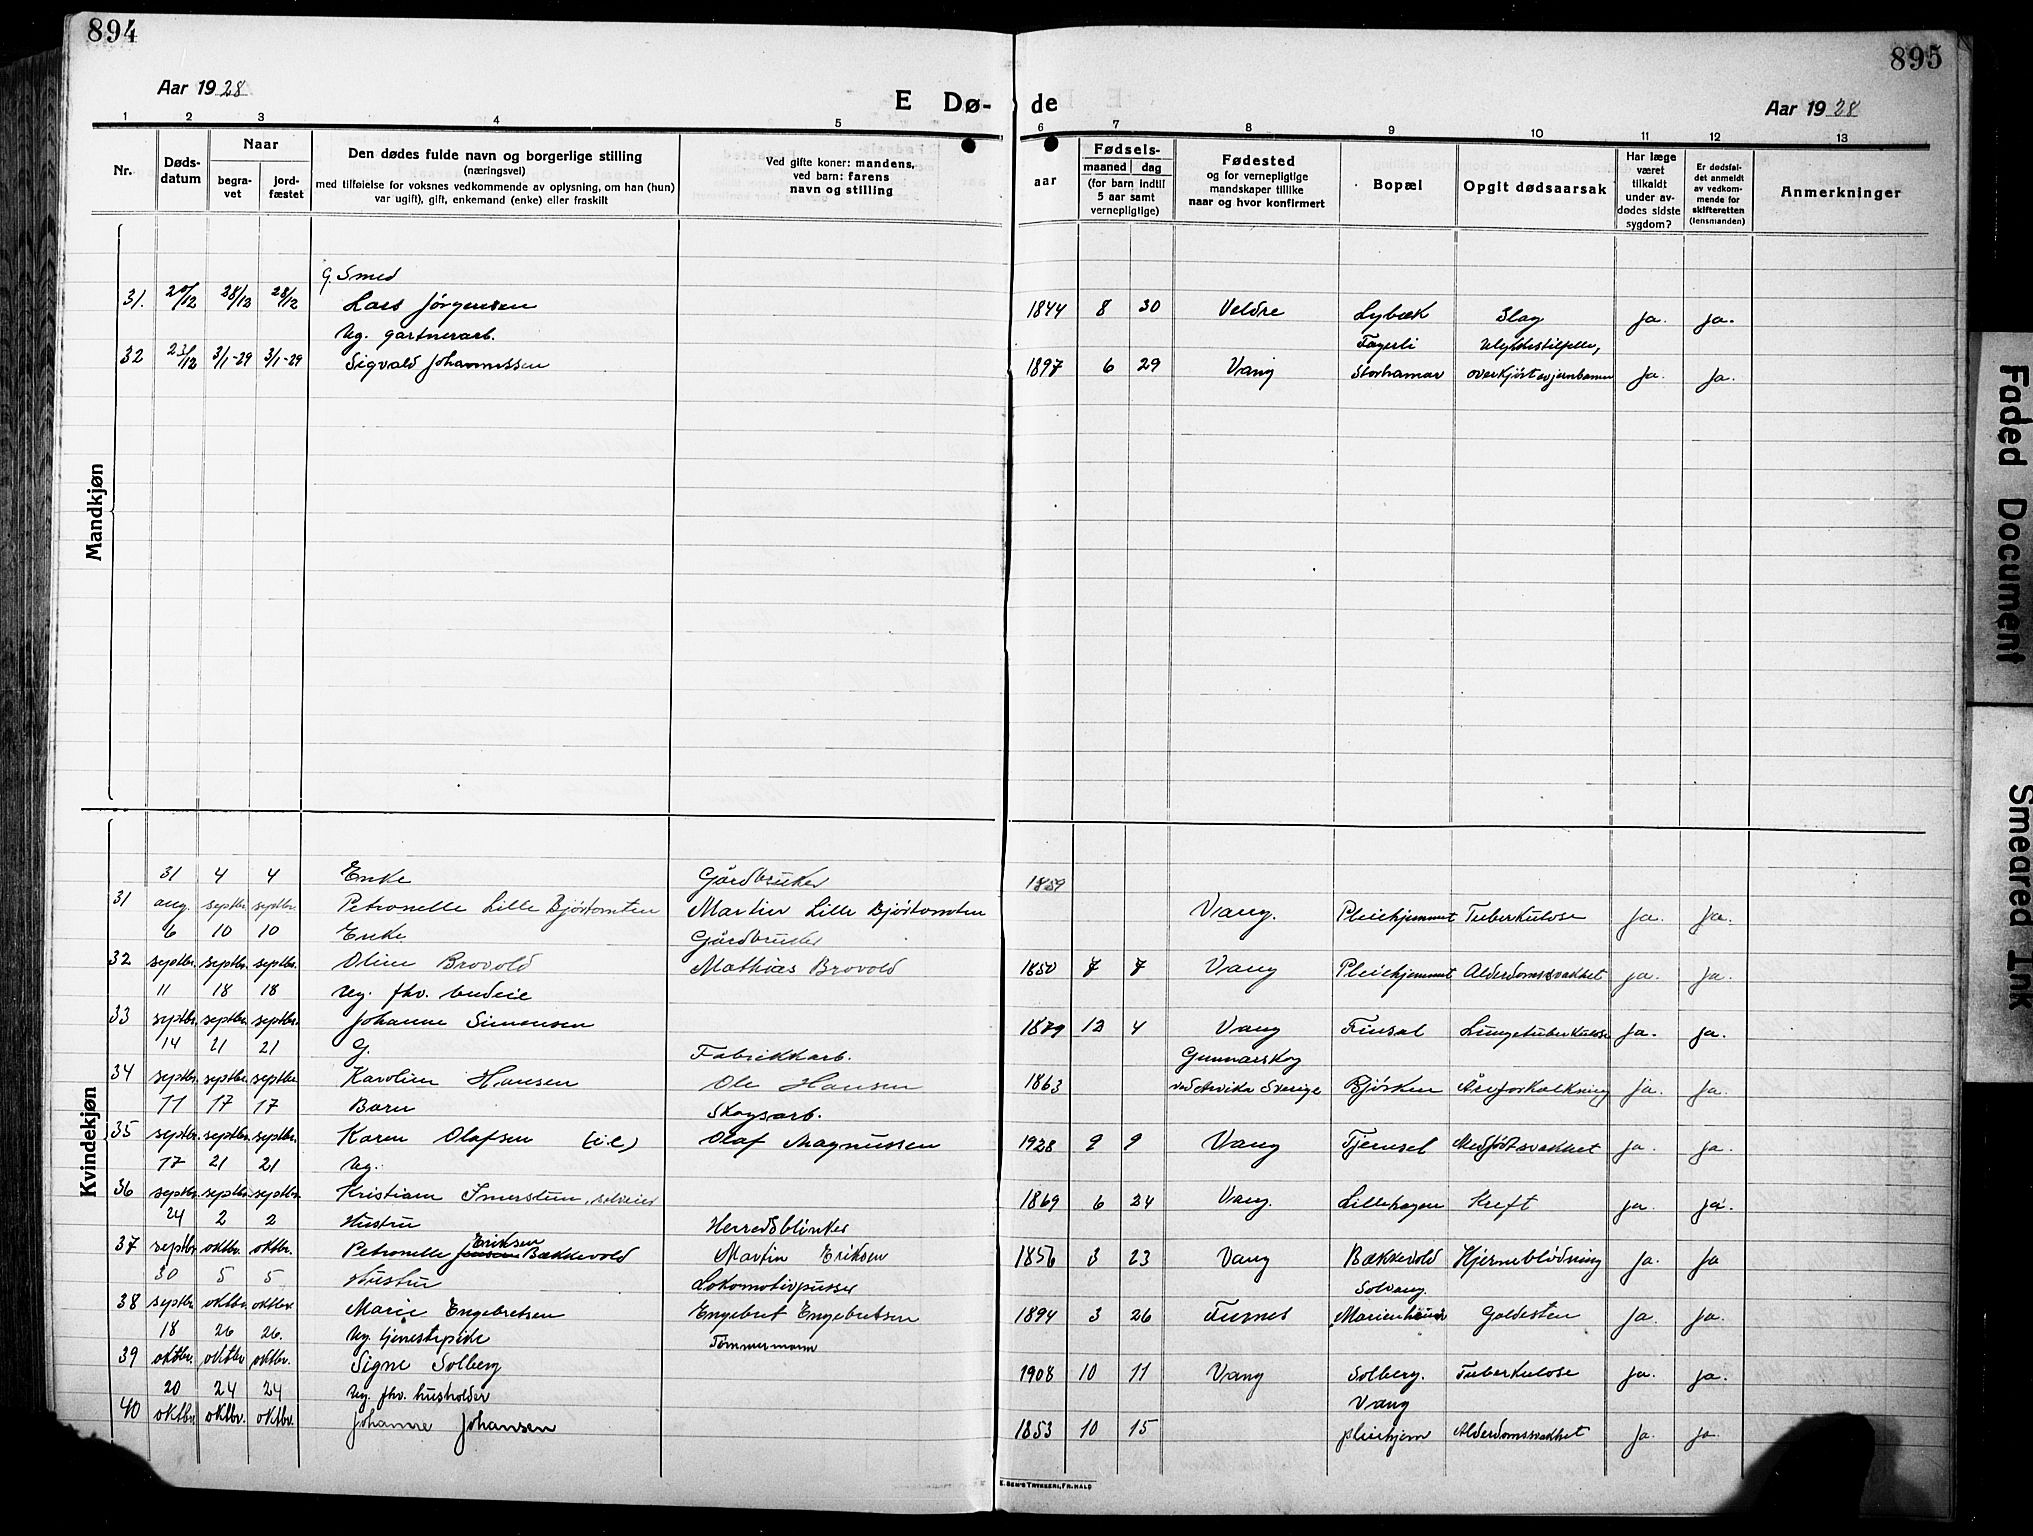 894
895
Aar 1928
E Dø-
de
Aar 1928
1 2 3 4 5 6 7 8 9 10 11 12 13
Nr.
Døds-
datum
Naar
begra-
vet
jord-
fæstet
Den dødes fulde navn og borgerlige stilling
(næringsvei)
med tilføielse for voksnes vedkommende av oplysning, om han (hun)
var ugift), gift, enkemand (enke) eller fraskilt
Ved gifte koner: mandens,
ved barn: farens
navn og stilling
aar
Fødsels-
maaned dag
(for barn indtil
5 aar samt
vernepligtige)
Fødested
og for vernepligtige
mandskaper tillike
naar og hvor konfirmert
Bopæl
Opgit dødsaarsak
Har læge
været
tilkaldt
under av-
dødes sidste
sygdom?
Er dødsfal-
det anmeldt
av vedkom-
mende for
skifteretten
(lensmanden)
Anmerkninger
Mandkjøn
G. Smed
31. 20/12 28/12 28/12 Lars Jørgensen 1844 8 30 Veldre Lybæk Slag ja. ja.
Ug. gartnerarb. Fagerli Ulykkestilfelle,
32 23/12 3/1-29 3/1-29 Sigvald Johannessen 1897 6 29 Vang Storhamar overkjört av jernbanen ja. ja.
Kvindekjøn
31 4 4 Enke Gårdbruker 1859
31 aug. septbr. septbr. Petronelle Lille Bjöstomten Martin Lille Bjöstomten Vang. Pleiehjemmet Tuberkulose ja. ja.
6 10 10 Enke Gårdbruker
32 septbr. septbr. septbr. Oline Brovold Mathias Brovold 1850 7 7 Vang Pleiehjemmet Alderdomssvakhet ja. ja.
11 18 18 Ug. fhv. budeie
33 septbr. septbr. septbr. Johanne Simensen 1879 12 4 Vang Finsal Lungetuberkulose ja. ja.
14 21 21 G. Fabrikkarb. Gunnarskog
34 septbr. septbr. septbr. Karoline Hansen Ole Hansen 1863 ved Arvika Sverige Bjørken Åreforkalkning ja. ja.
11 17 17 Barn Skogsarb.
35 septbr. septbr. septbr. Karen Olafsen Olaf Magnussen 1928 9 9 Vang Tjernsel Medfödt svakhet ja ja.
17 21 21 Ug.
36 septbr. septbr. septbr. Kristiane Imerslun, 1869 6 24 Vang. Lillehagen Kreft ja. ja.
24 2 2 Hustru Herredsblinker
37 septbr. oktbr. oktbr. Petronelle Eriksen Bækkevold Martin Eriksen 1856 3 23 Vang Bækkevold Hjerneblödning ja. ja
30 5 5 Hustru Lokomotivpusser Solvang
38 septbr. oktbr. oktbr. Marie Engebretsen Engebret Engebretsen 1894 3 26 Furnes Galdesten ja. ja
18 26 26. Ug. tjenestepike Tömmermann
39 oktbr. oktbr oktbr. Signe Solberg 1908 10 11 Vang Solberg. Tuberkulose ja. ja.
20 24 24 Ug. fhv. husholder Vang
40 oktbr. oktbr. oktbr. Johanne Johansen 1853 10 15 pleiehjem Alderdomssvakhet ja. ja.
Faded Document
Smeared Ink